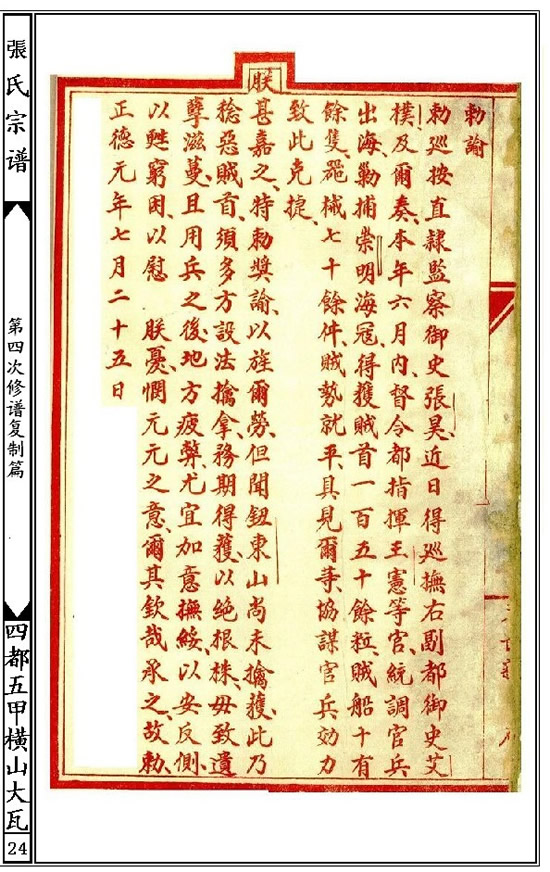 勅諭
勅廵按直隷監察御史張昊近日得廵撫右副都御史艾
樸及爾奏本年六月内督令都指揮王憲等官統調官兵
出海勦捕崇明海冦得獲賊首一百五十餘粒賊船十有
餘隻噐械七十餘件賊勢就平具見爾等協謀官兵効力
致此克捷
朕
甚嘉之特勅奬諭以旌爾勞但聞鈕東山尚未擒獲此乃
稔惡賊首須多方設法擒拿務期得獲以绝根株毋致遺
孽滋蔓且用兵之後地方疲弊尤宜加意撫綏以安反側
以甦窮困以慰 朕憂憫元元之意爾其欽哉承之故勅
正德元年七月二十五日
張氏宗谱
第四次修谱复制篇
四都五甲横山大瓦
24